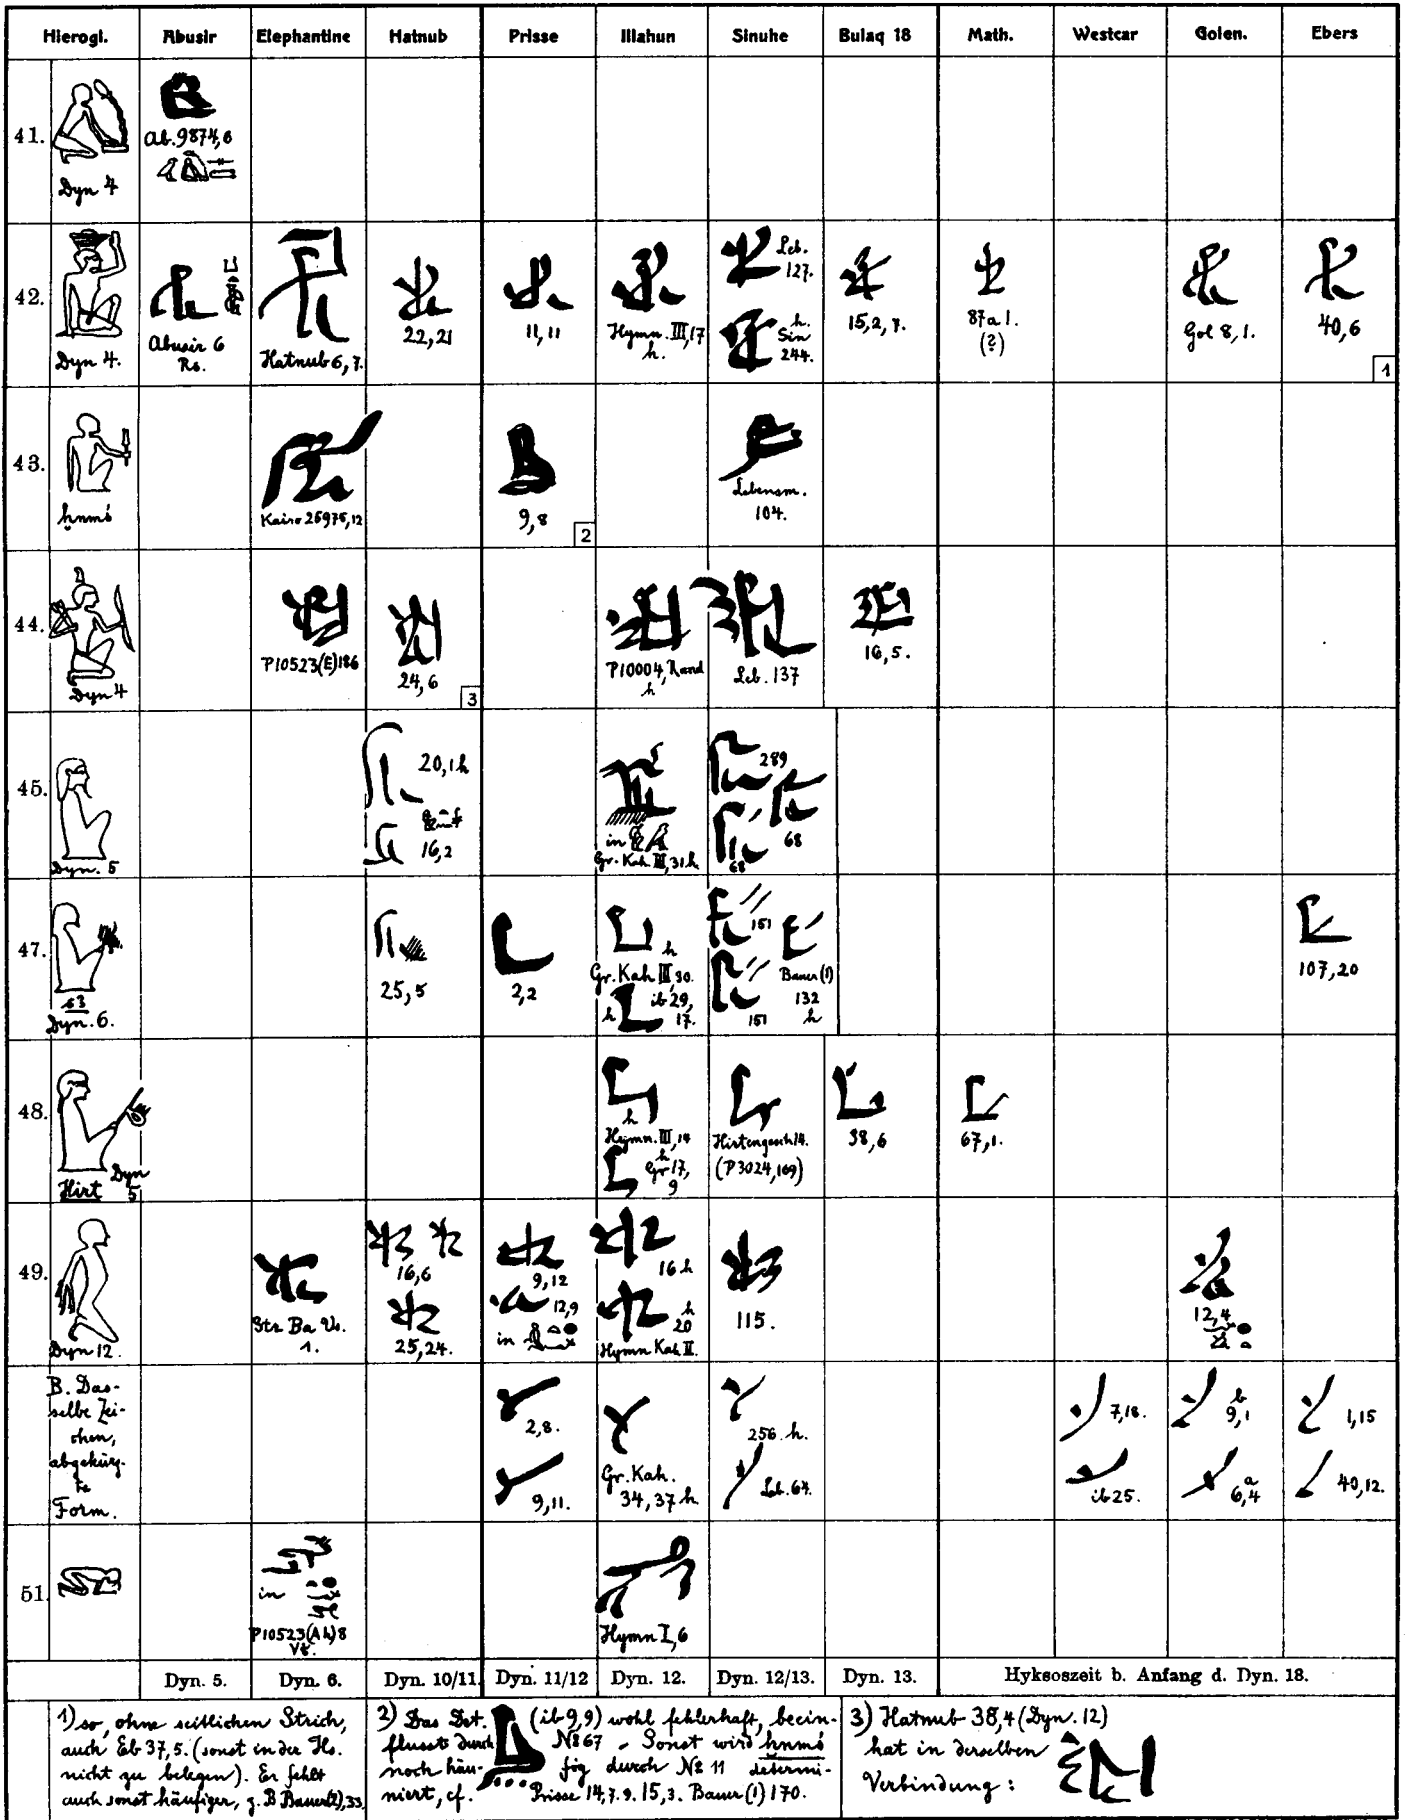 Hierogl. Abusir Elephantine Hatnub Prisse Illahun Sinuhe Bulaq 18 Math. Westcar Golen. Ebers
41.
Dyn 4
Ab. 9874,6
42.
Dyn 4.
Abusir 6
Rs.
Hatnub 6, 7.
22,21
11,11
Hymn. III,17
h.
Leb.
127.
h.
Sin
244.
15,2,7.
87a 1.
(?)
Gol 8,1.
40,6
1
43.
ḫnmś
Kairo 25975,12
9,8
2
Lebensm.
104.
44.
Dyn 4
P10523(E)186
24,6
3
P10004, Rand
h
Leb. 137
16,5.
45.
Dyn. 5
20,1h
16,2
in
Gr. Kah III, 31h
289
68
68
47.
s3
Dyn. 6.
25,5
2,2
h
Gr. Kah III,30.
h ib 29,
17.
151
151
Bauer (1)
132
h
107,20
48.
Dyn
Hirt 5
h
Hymn. III,14
h
Gr 17,
9
Hirtengesch 14.
(P3024,169)
38,6
67,1.
49.
Dyn 12.
Str Ba Vs.
1.
16,6
25,24.
9,12
12,9
in
16 h
h
20
Hymn Kah II.
115.
12,4
B. Das-
selbe Zei-
chen,
abgekürz-
te
Form.
2,8.
9,11.
Gr. Kah.
34,37h
256. h.
Leb. 64.
7,18.
ib 25.
b
9,1
a
6,4
1,15
40,12.
51.
in
P10523(Ah)8
Vs.
Hymn I,6
Dyn. 5. Dyn. 6. Dyn. 10/11. Dyn. 11/12 Dyn. 12. Dyn. 12/13. Dyn. 13. Hyksoszeit b. Anfang d. Dyn. 18.
1) so, ohne seitlichen Strich,
auch Eb 37,5. (sonst in der Hs.
nicht zu belegen). Er fehlt
auch sonst häufiger, z. B Bauer(2),33
2) Das Det. (ib 9,9) wohl fehlerhaft, beein-
flusst durch № 67 - Sonst wird ḫnmś
noch häufig durch № 11 determi-
niert, cf. Prisse 14,7.9. 15,3. Bauer (1) 170.
3) Hatnub 38,4 (Dyn. 12)
hat in derselben
Verbindung: